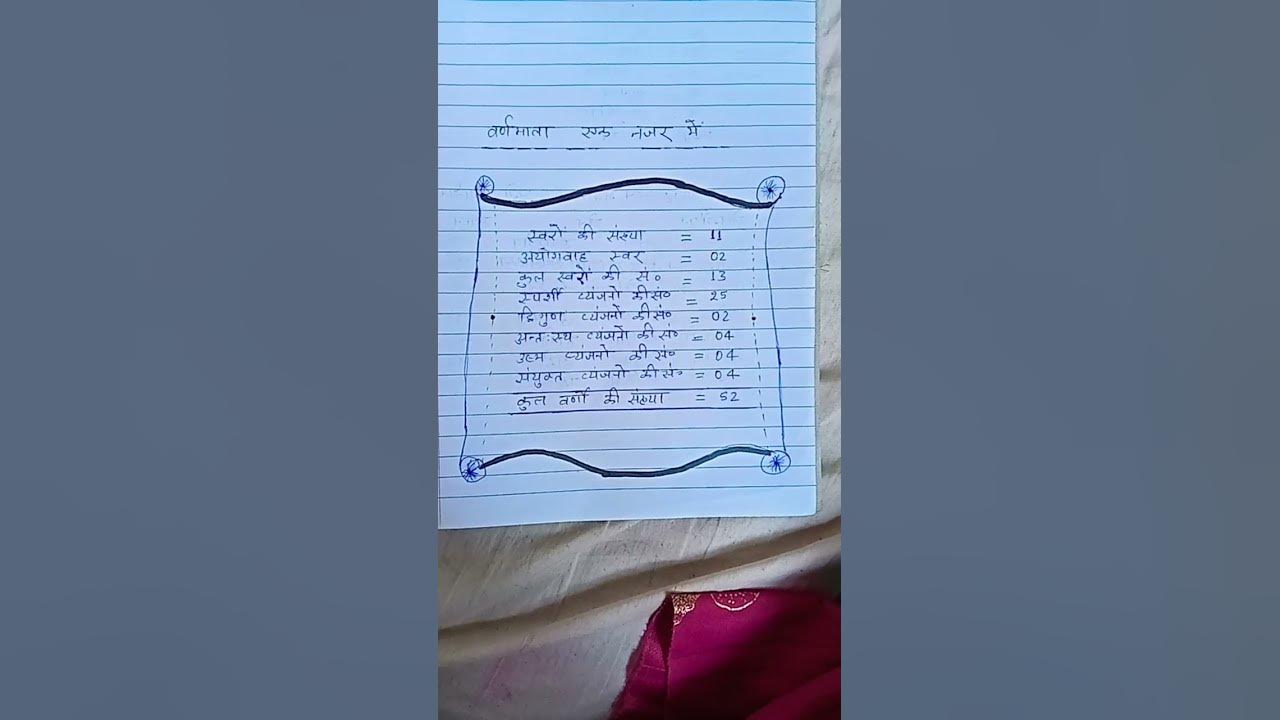 वर्णमाला एक नजर में
स्वरों की संख्या = 11
अयोगवाह स्वर = 02
कुल स्वरों की सं० = 13
स्पर्शी व्यंजनो की सं० = 25
द्विगुण व्यंजनों की सं० = 02
अन्तःस्थ व्यंजनों की सं० = 04
उष्म व्यंजनो की सं० = 04
संयुक्त व्यंजनो की सं० = 04
कुल वर्णो की संख्या = 52